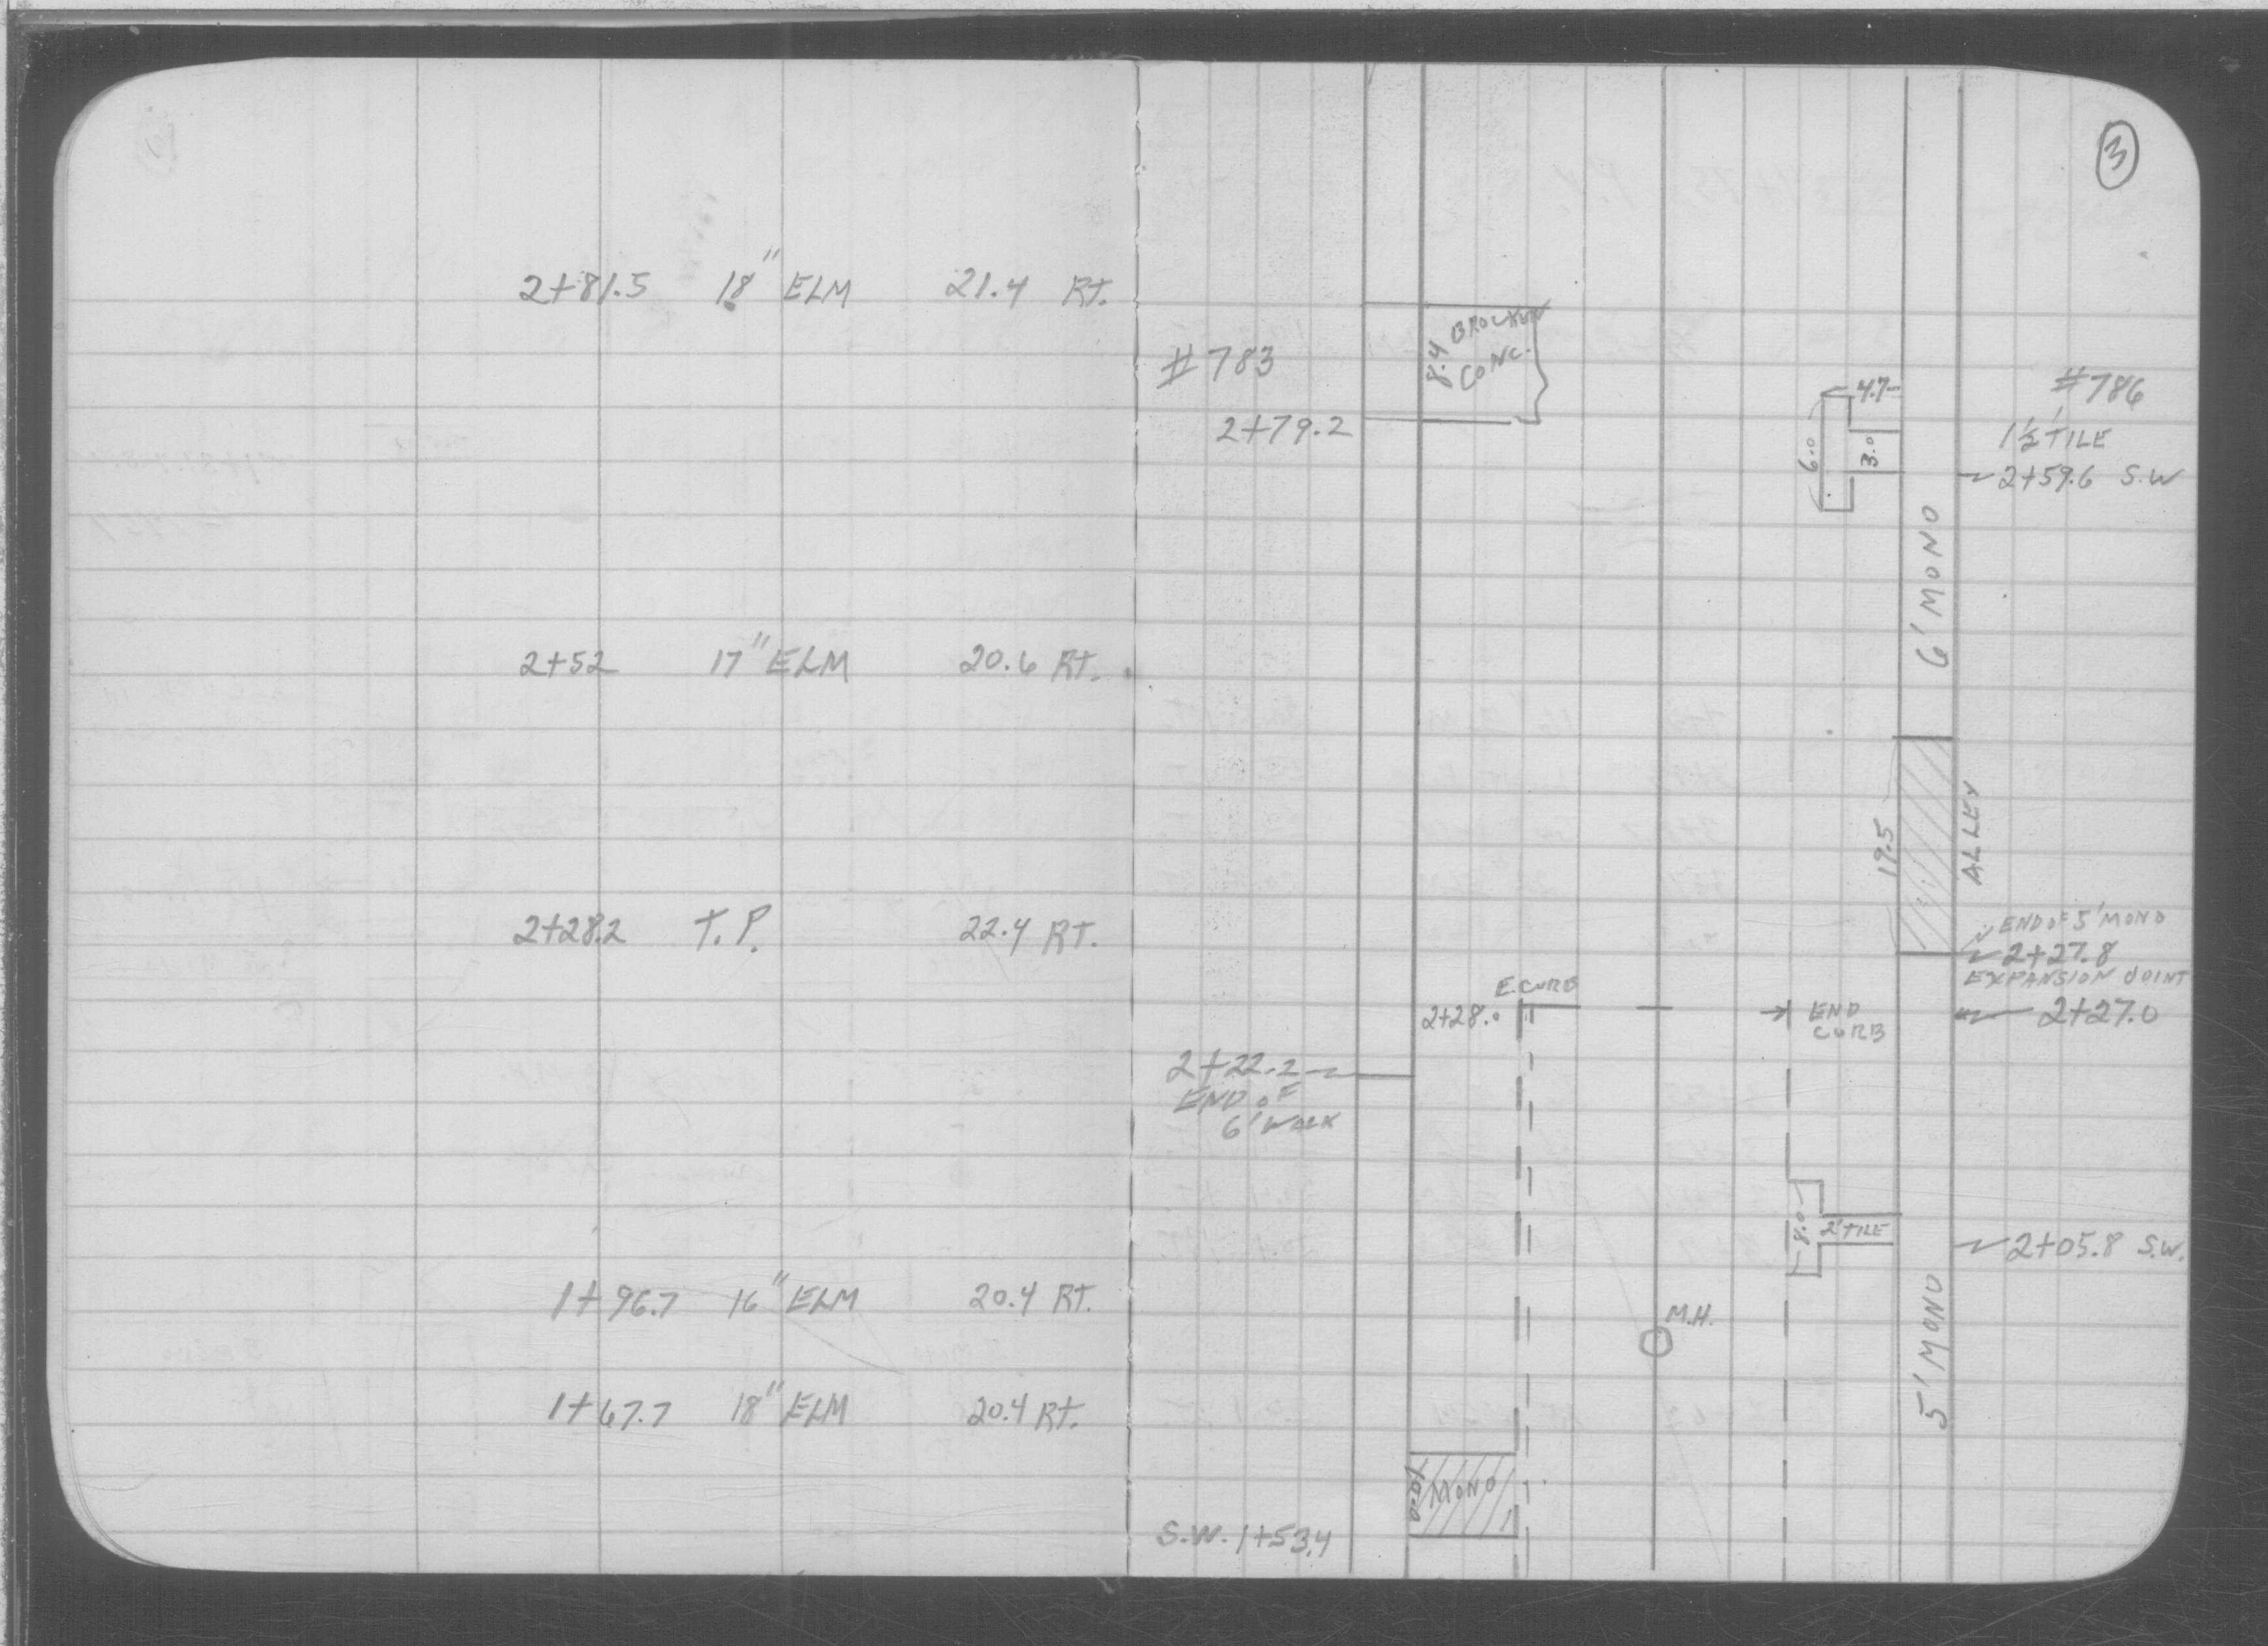 2+81.5 18" ELM 21.4 RT.
2+52 17" ELM 20.6 RT.
2+28.2 T.P. 22.4 RT.
1+96.7 16" ELM 20.4 RT.
1+67.7 18" ELM 20.4 RT.
3
8.4 BROCKEN
CONC.
#783
2+79.2
4.7
6.0
3.0
#786
1½' TILE
2+59.6 S.W
6' MONO
19.5
ALLEY
END OF 5' MONO
2+27.8
EXPANSION JOINT
2+27.0
E.CURB
2+28.0
END
CURB
2+22.2
END OF
6' WALK
8.0
2' TILE
2+05.8 S.W.
M.H.
5' MONO
MONO
S.W. 1+53.4